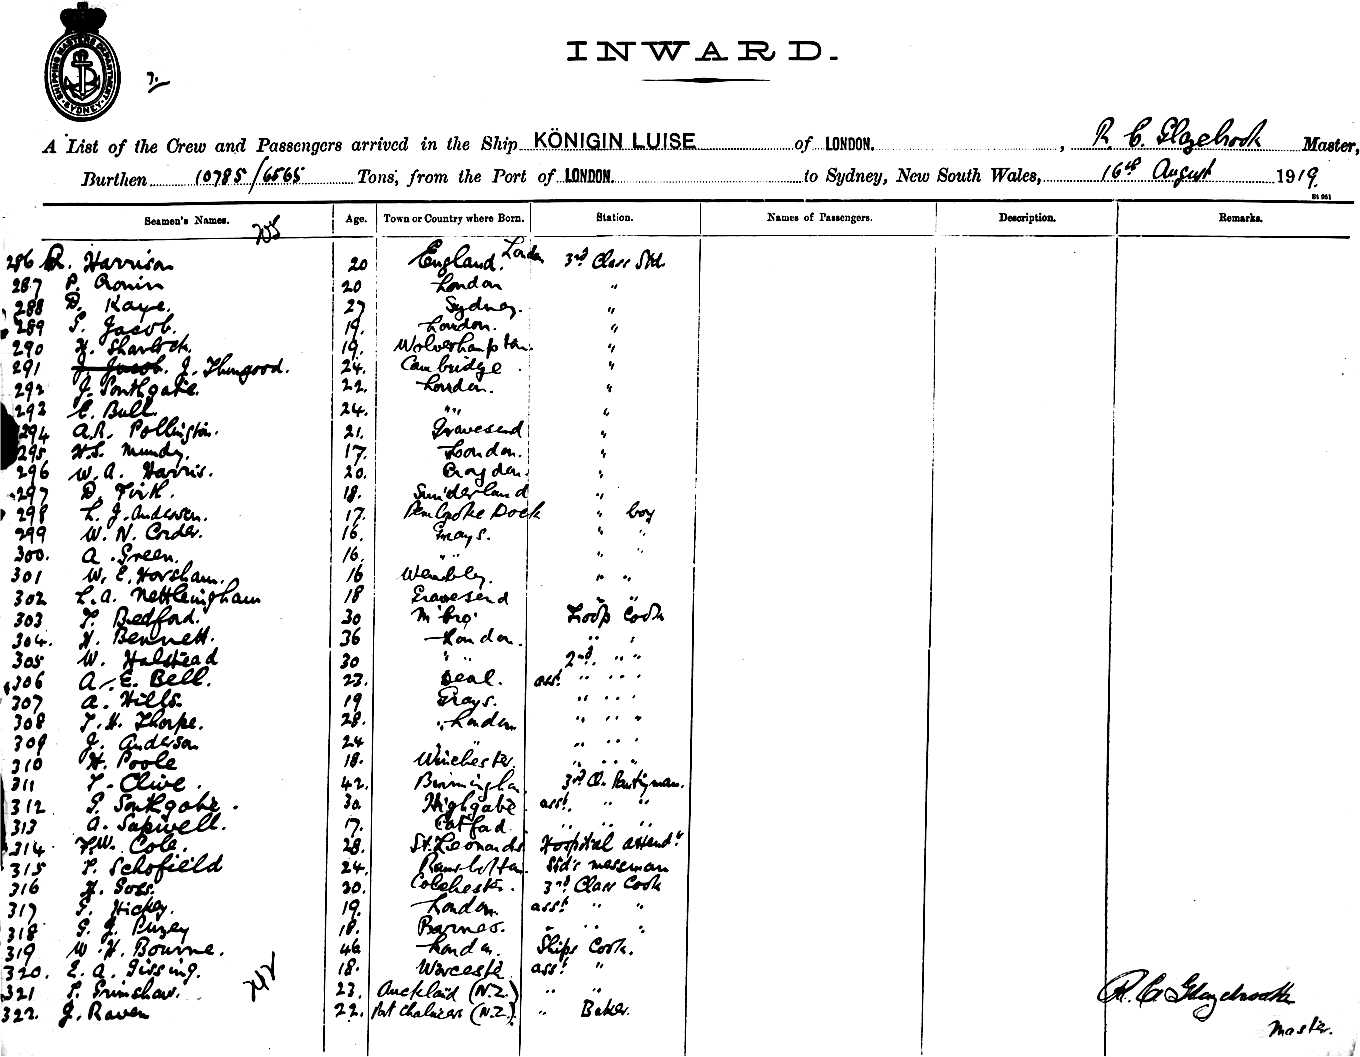 SHIPPING MASTERS DEPARTMENT SYDNEY
7.
INWARD.
A List of the Crew and Passengers arrived in the Ship KÖNIGIN LUISE of LONDON. , R C Glazebrook Master,
Burthen 10785/6565 Tons, from the Port of LONDON. to Sydney, New South Wales, 16th August 1919.
Seamen's Names. Age. Town or Country where Born. Station. Names of Passengers. Description. Remarks.
286 R. Harrison 20 England. London 3rd Class Std.
287 P. Cronin 20 London "
288 D. Kaye. 27 Sydney. "
289 S. Jacob. 19. London. "
290 H. Sharlock. 19. Wolverhampton. "
291 J. Jacob. J. Thurgood. 24. Cambridge. "
292 J. Southgate. 22. London. "
293 C. Bull. 24. " " "
294 A.R. Pollington. 21. Gravesend "
295 H.S. Mundy. 17. London. "
296 W. A. Harris. 20. Croydon. "
297 D. Firth. 18. Sunderland "
298 L. J. Andersen. 17. Pembroke Dock " boy
299 W. N. Corder. 16. Grays. " "
300. A. Green. 16. " " " "
301 W. E. Horsham. 16 Wembley. " "
302 L. A. Nettleingham 18 Gravesend " "
303 T. Bedford. 30 M'bro' Troop Cook
304. H. Bennett. 36 London. " "
305 W. Halstead 30 " " 2nd. " "
306 A. E. Bell. 23. Deal. asst " " "
307 A. Hills. 19 Grays. " " " "
308 T. H. Thorpe. 28. London " " " "
309 J. Anderson 24 " " " " "
310 H. Poole 18. Winchester. " " " "
311 T. Clive. 42. Birmingham 3rd Cl. Pantryman.
312. S. Southgate. 30. Highgate asst. " "
313 A. Sapwell. 7. Catford " " " "
314 F.W. Cole. 28. St. Leonards Hospital attendt
315 P. Schofield 24. Ramsbottom Std's messman
316 H. Goss. 30. Colchester. 3rd Class Cook
317 S. Hickey. 19. London asst " "
318 G. J. Puzey 18. Barnes. " " "
319 W. H. Bourne. 46 London. Ships Cook.
320. E. A. Gissing. 18. Worcester asst "
321 P. Grimshaw. 23. Auckland (N.Z.) " "
322. J. Raven 22. Port Chalmers (N.Z.) " Baker.
R. C Glazebrook
Master.